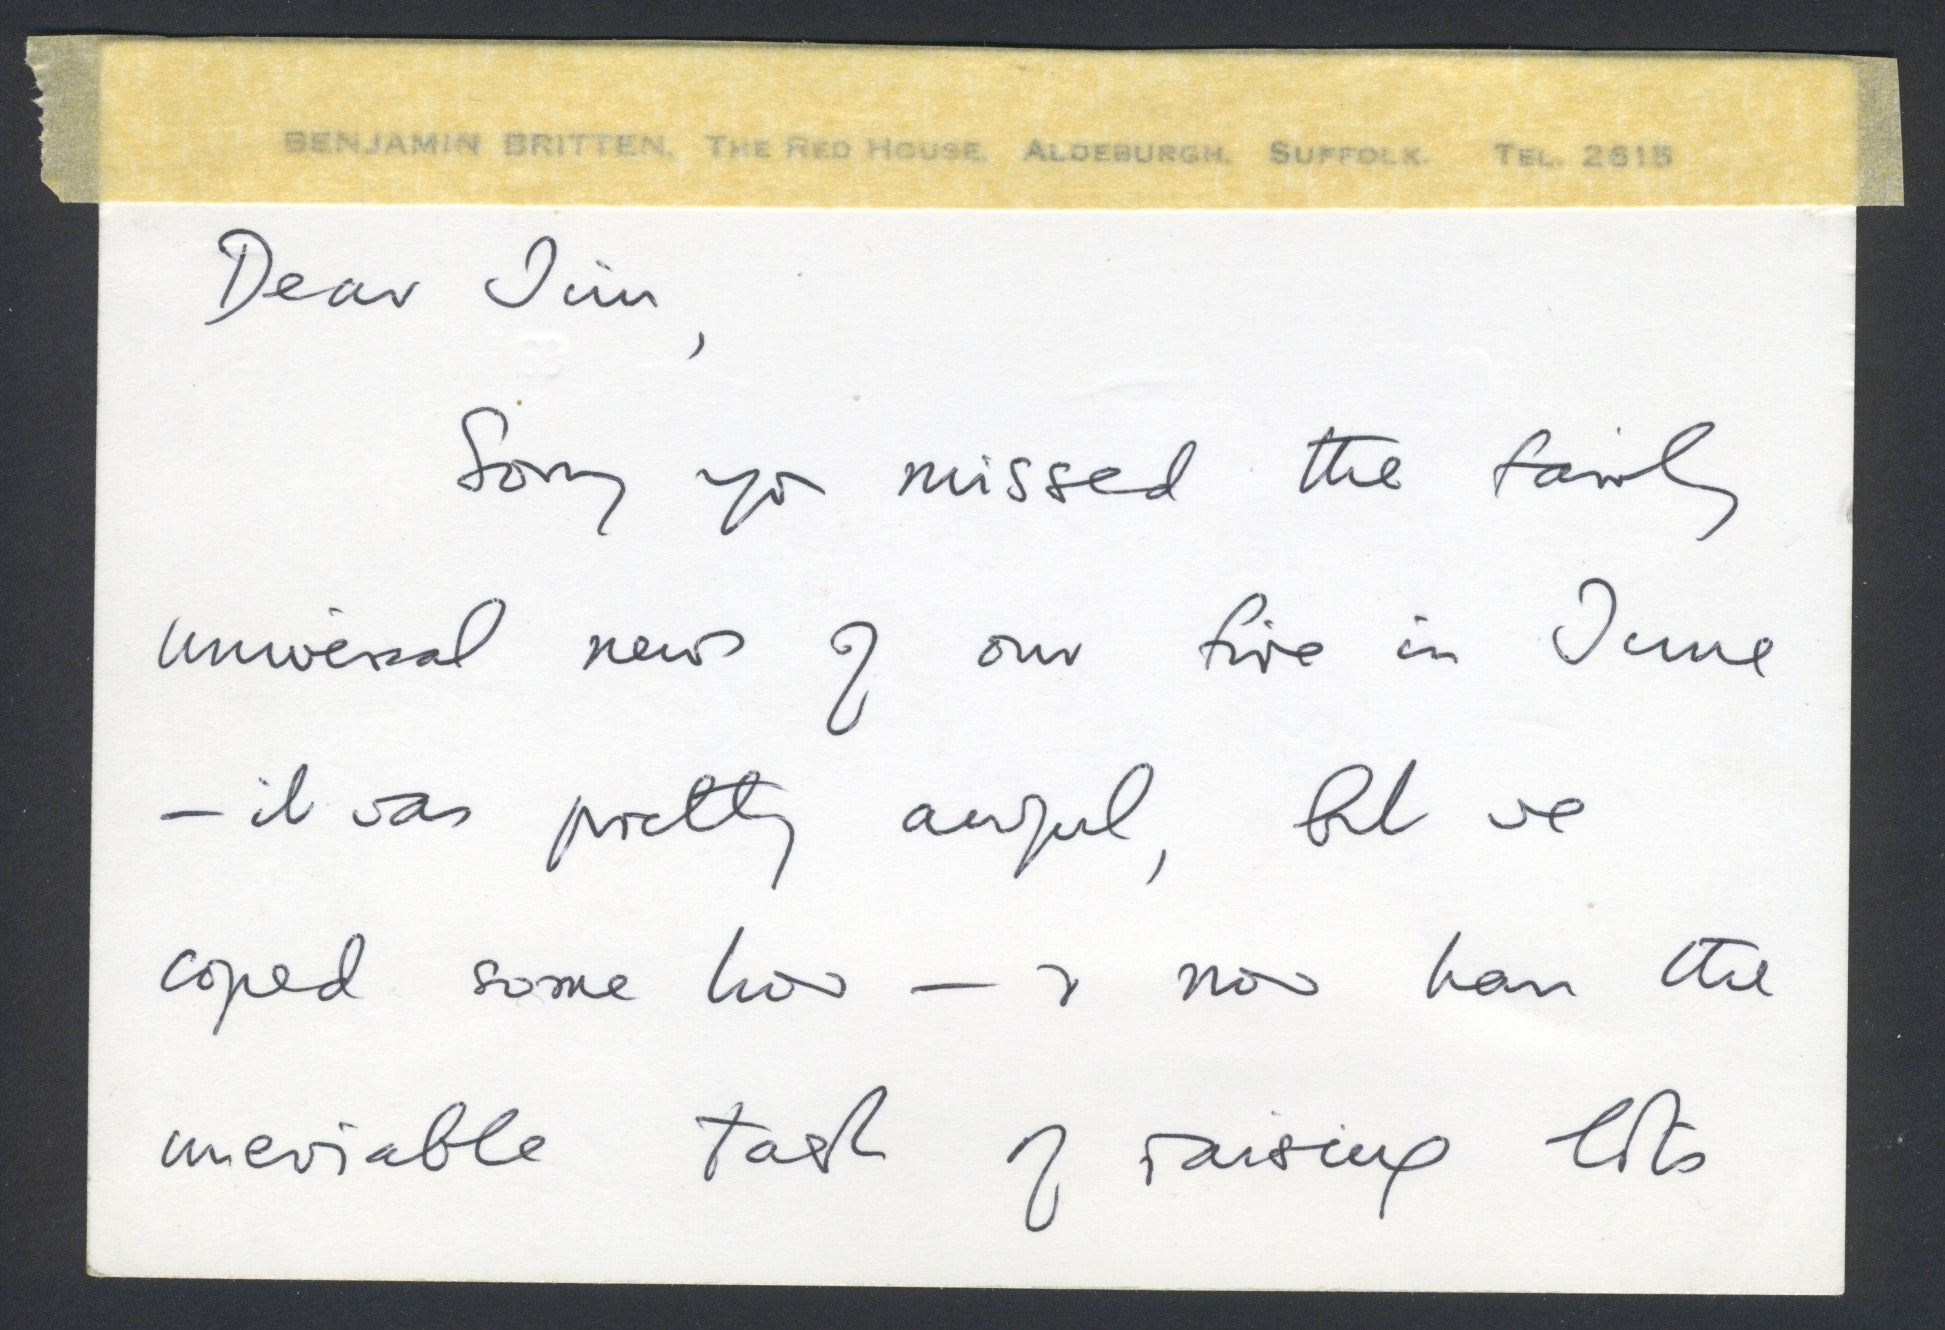 BENJAMIN BRITTEN, THE RED HOUSE, ALDEBURGH, SUFFOLK. TEL. 2615
Dear Jim,
Sorry you missed the fairly
universal news of our fire in June
— it was pretty awful, but we
coped some how — & now have the
uneviable task of raising lots